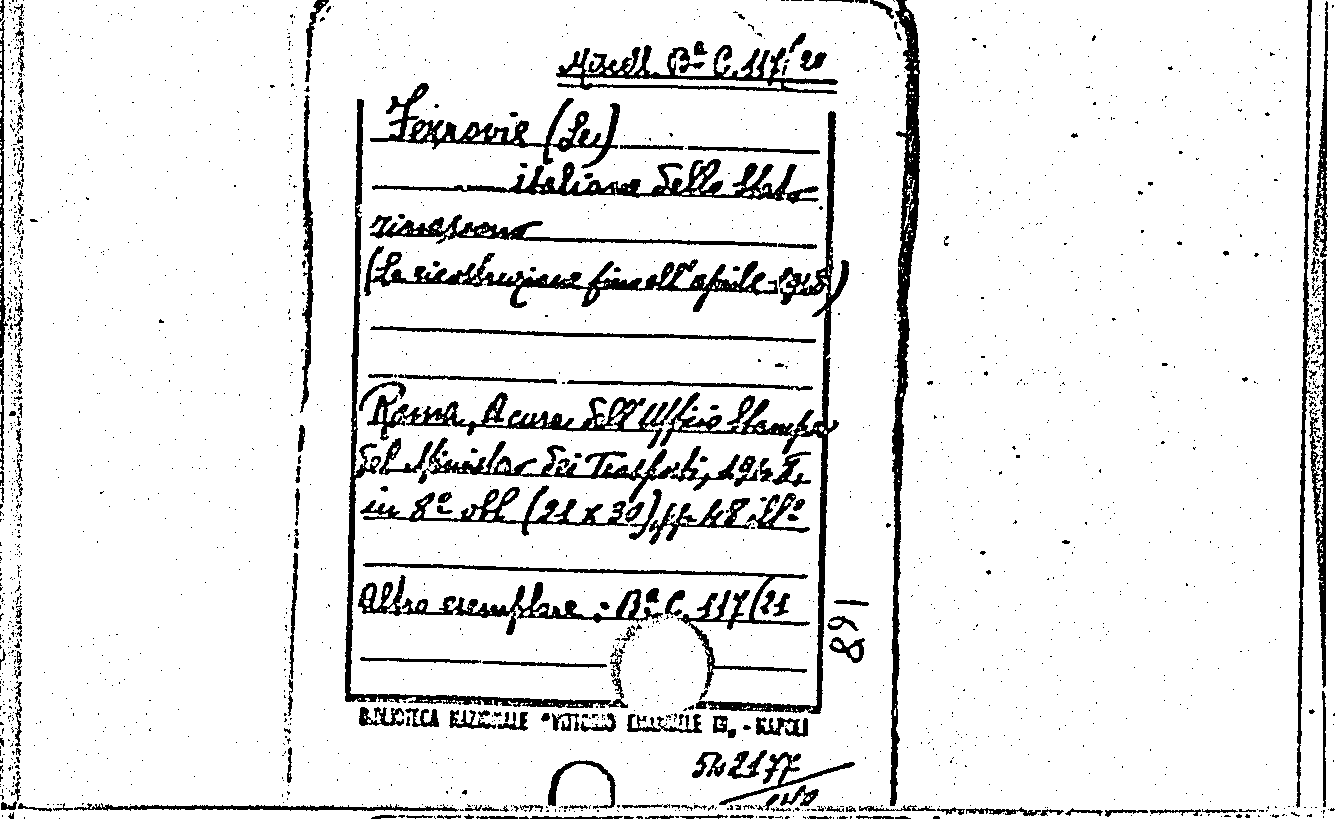 Miscell. Bª C. 117/20
Ferrovie (Le)
italiane dello Stato
rinascono
(La ricostruzione fino all'aprile 1948)
Roma, A cura dell'Ufficio Stampa
del Minister dei Trasporti, 194
in 8º obl (21 x 30) pp. 48 ill.e
Altro esemplare : Bª C. 117(21
168
BIBLIOTECA NAZIONALE "VITTORIO EMANUELE III„ - NAPOLI
542177